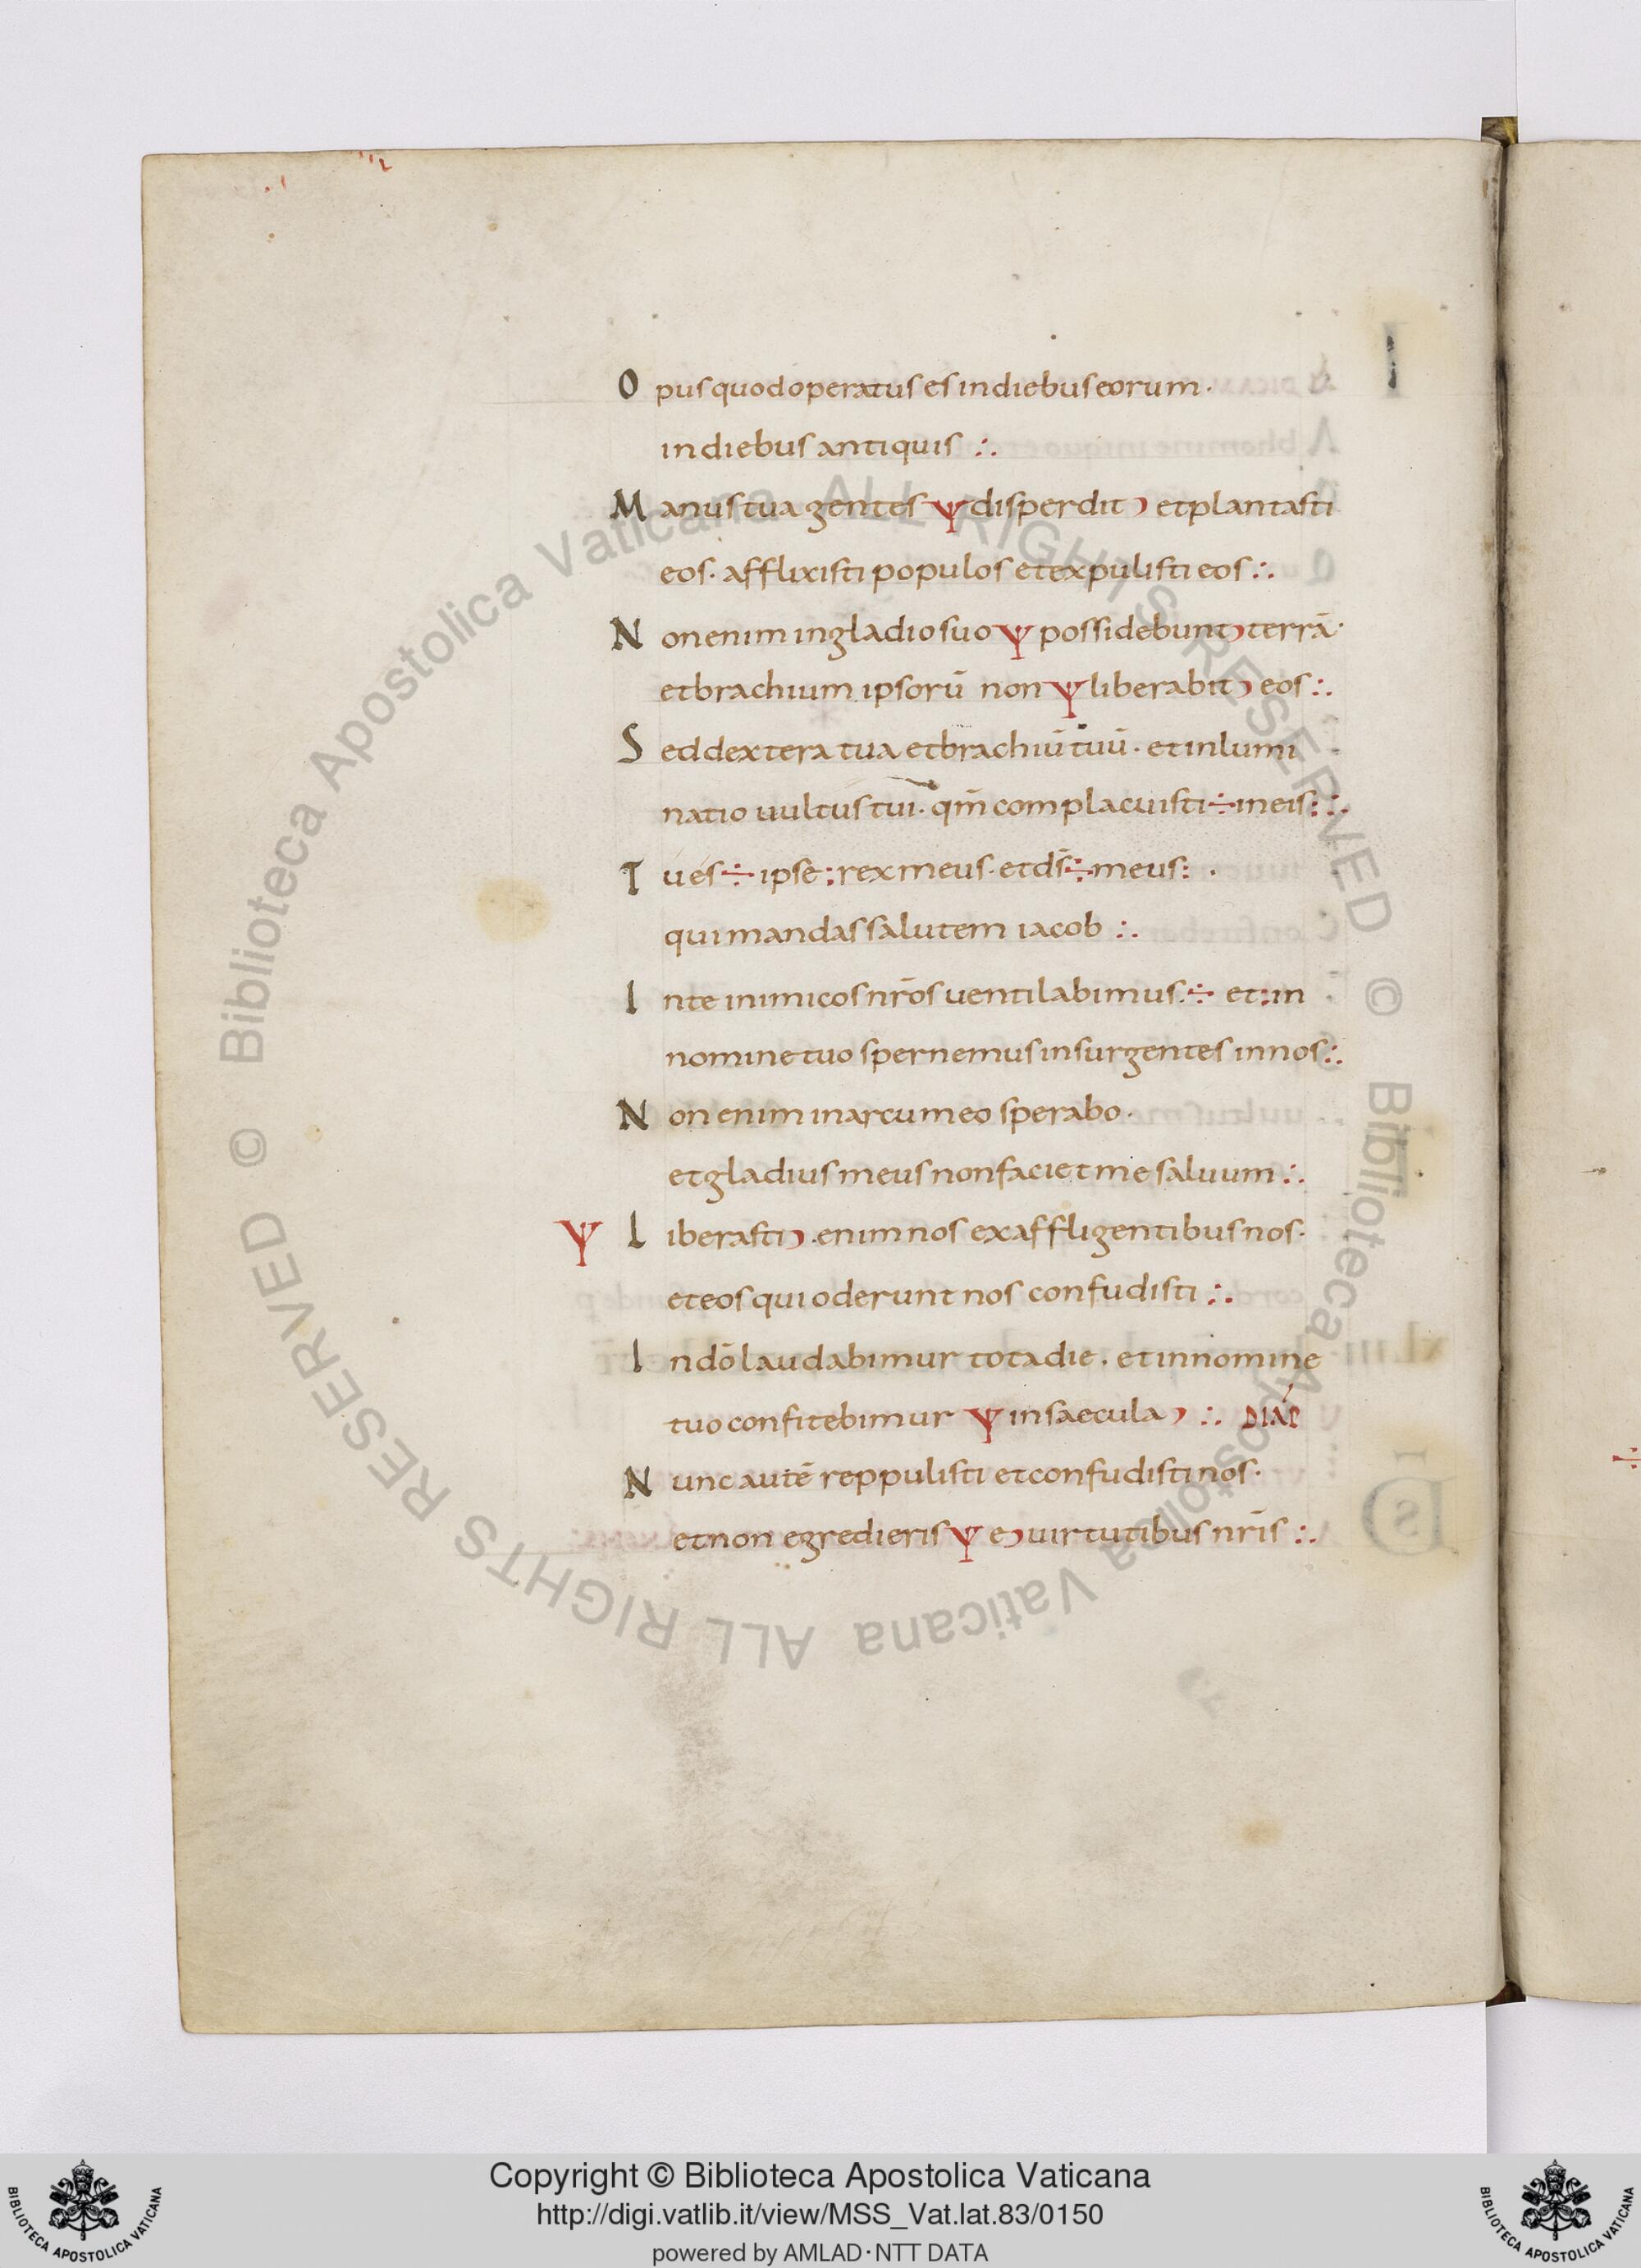 O pus quod operatus es in diebus eorum ·
in diebus antiquis ∴
M anus tua gentes Ψ disperdit ) et plantasti
eos · afflixisti populos et expulisti eos ∴
N on enim in gladio suo Ψ possidebunt ) terrā ·
et brachium ipsorū non Ψ liberabit ) eos ∴
S ed dextera tua et brachiū tuū · et inlumi
natio uultus tui · qm̄ complacuisti ÷ in eis : ∴
T u es ÷ ipse : rex meus · et ds̄ ÷ meus : ·
qui mandas salutem iacob ∴
I n te inimicos nr̄os uentilabimus · ÷ et : in
nomine tuo spernemus insurgentes in nos ∴
N on enim in arcu meo sperabo ·
et gladius meus non faciet me saluum ∴
Ψ L iberasti ) · enim nos ex affligentibus nos ·
et eos qui oderunt nos confudisti ∴
I n dō laudabimur tota die · et in nomine
tuo confitebimur Ψ in saecula ) ∴ DIAP̄
N unc autē reppulisti et confudisti nos ·
et non egredieris Ψ e ) uirtutibus nr̄is ∴
© Biblioteca Apostolica Vaticana ALL RIGHTS RESERVED © Biblioteca Apostolica Vaticana ALL RIGHTS RESERVED
Copyright © Biblioteca Apostolica Vaticana
http://digi.vatlib.it/view/MSS_Vat.lat.83/0150
powered by AMLAD·NTT DATA
BIBLIOTECA APOSTOLICA VATICANA
BIBLIOTECA APOSTOLICA VATICANA